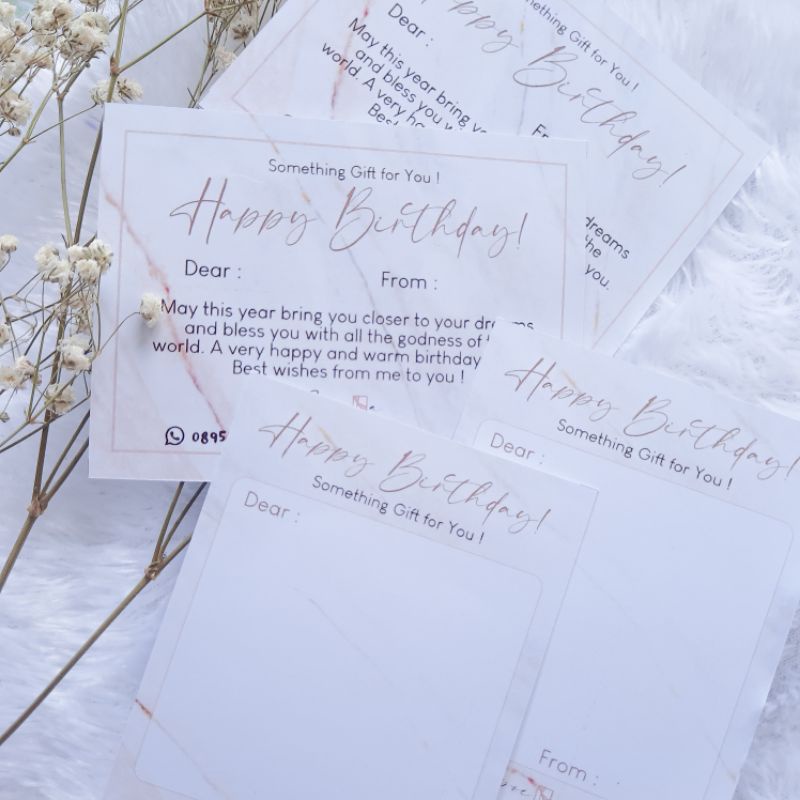 Something Gift for You !
Happy Birthday!
Dear :
May this year bring
and bless you
world. A very
dreams
you.
Something Gift for You !
Happy Birthday!
Dear :
From :
May this year bring you closer to your
and bless you with all the godness of
world. A very happy and warm birthday
Best wishes from me to you !
0895
Happy Birthday!
Something Gift for You !
Dear :
From :
Happy Birthday!
Something Gift for You !
Dear :